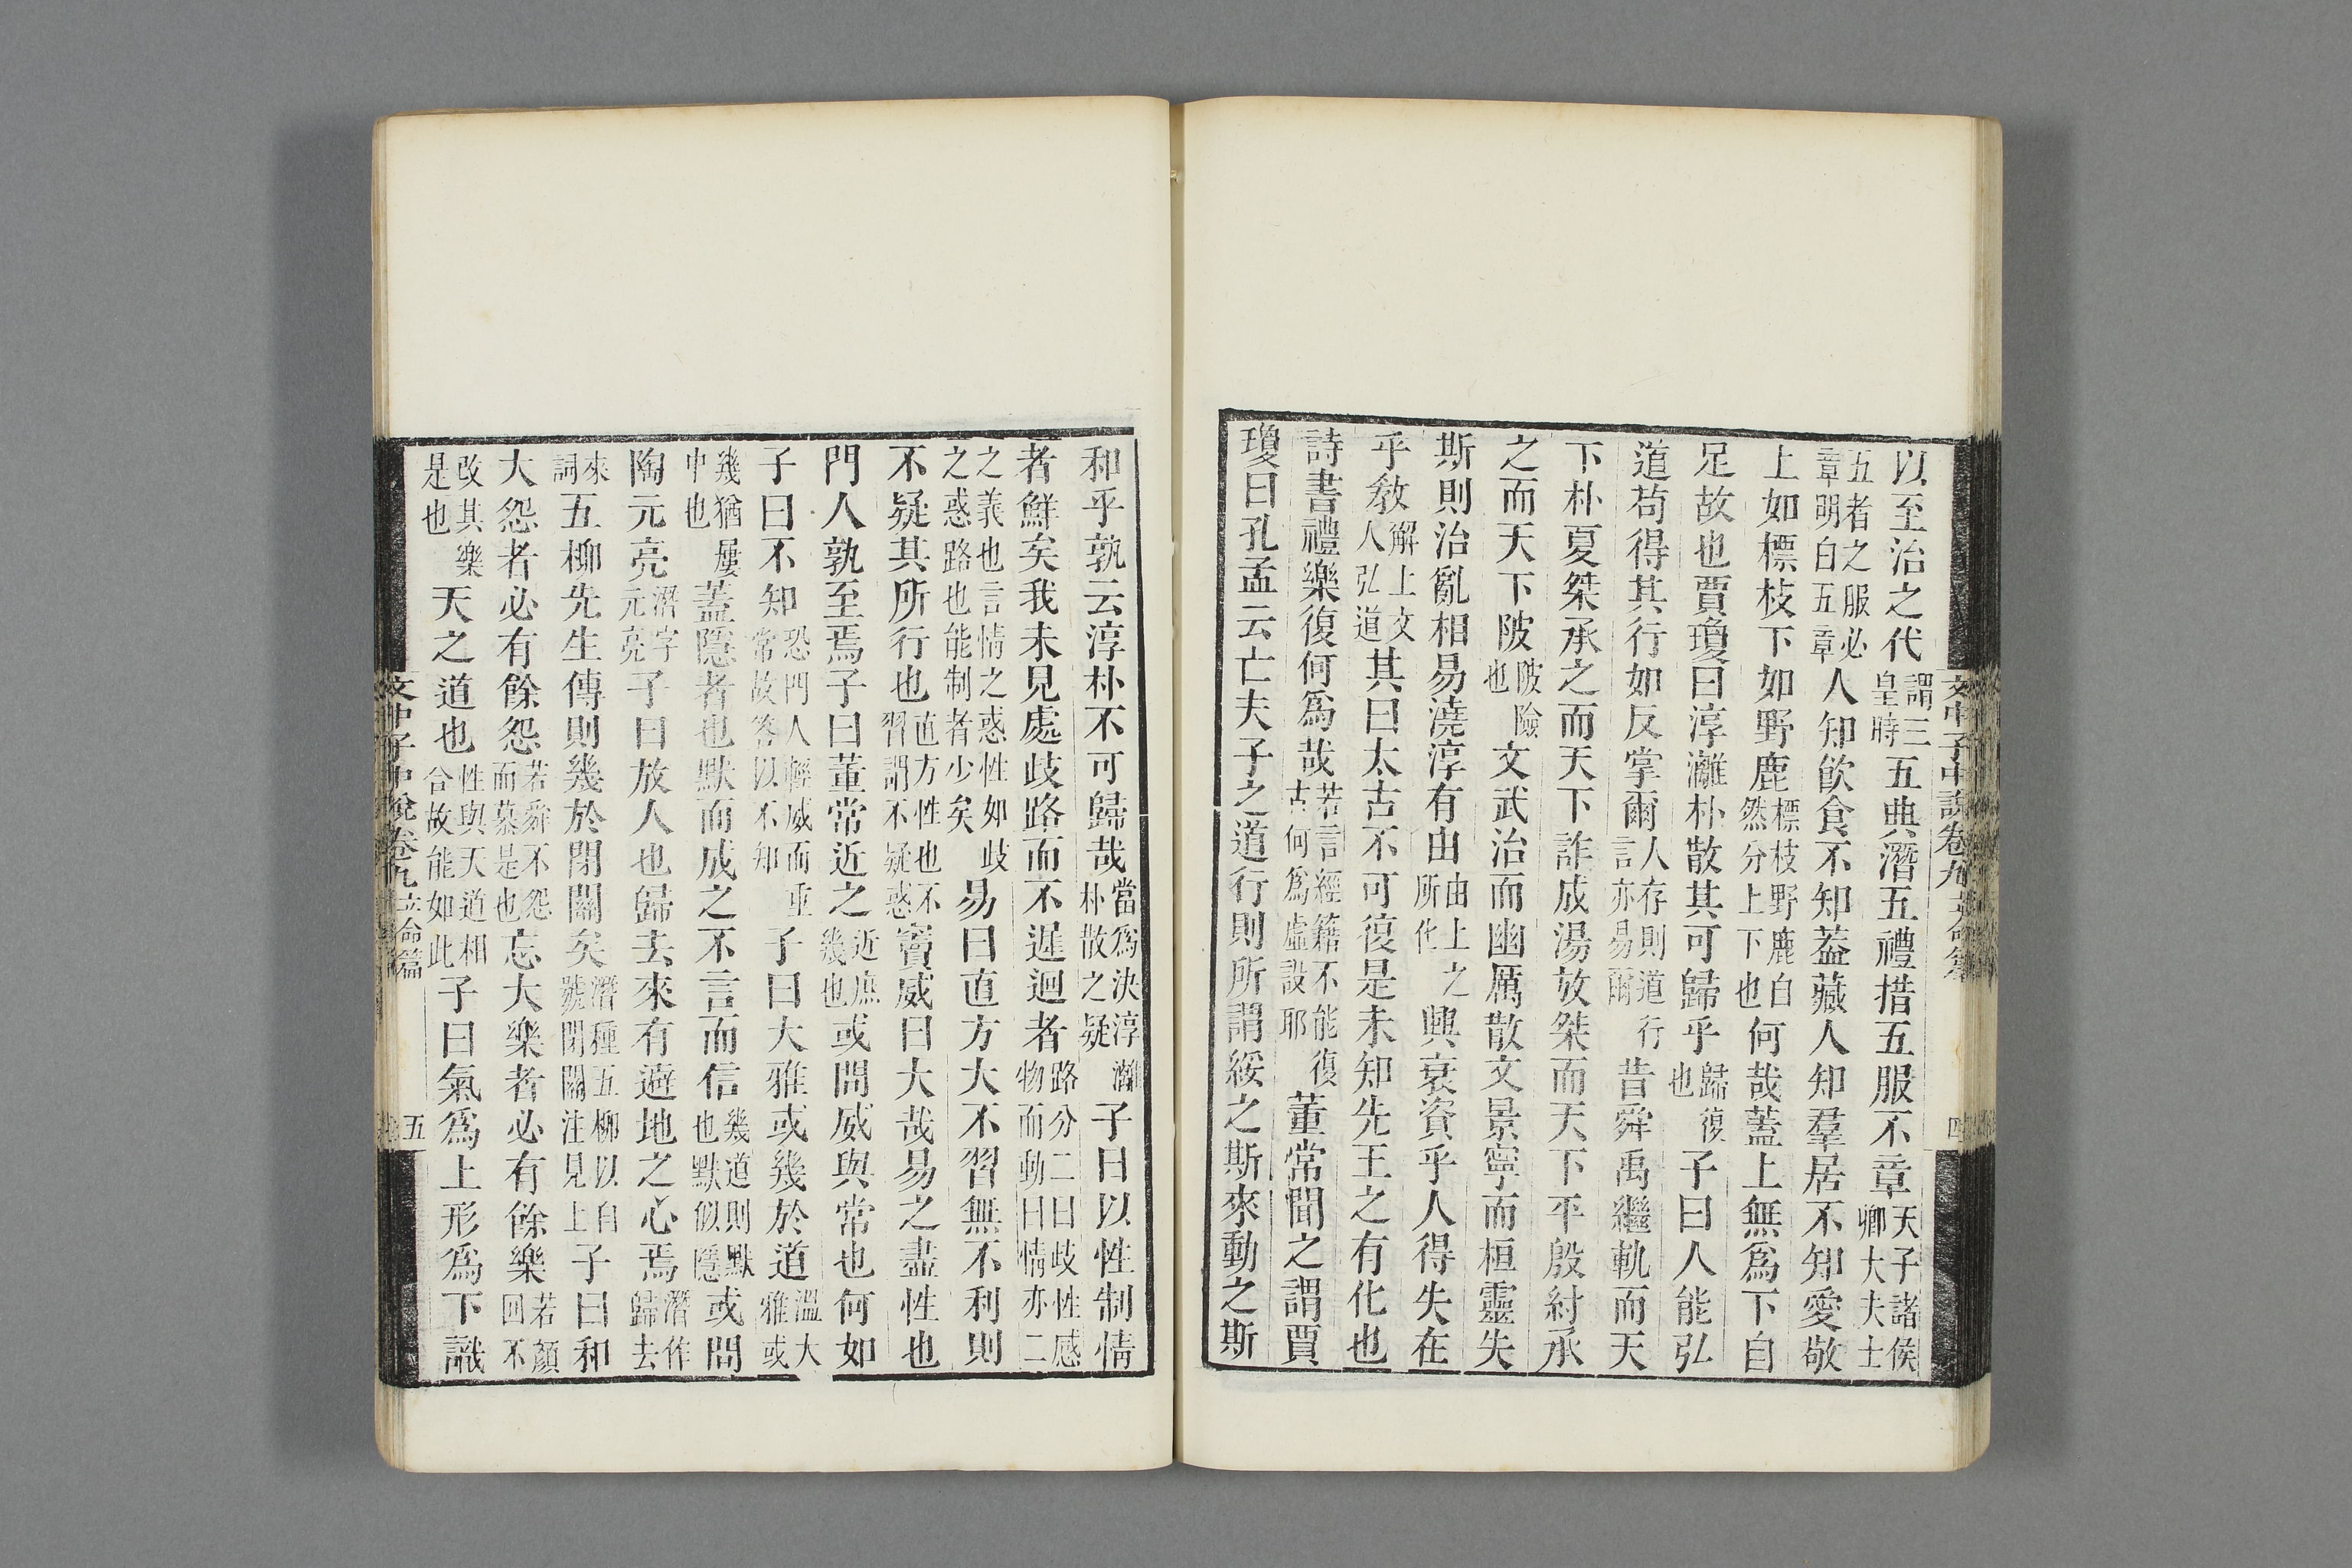 文中子中說卷九立命篇
四
以至治之代謂三皇時五典潛五禮措五服不章天子諸侯卿大夫士
五者之服必章明白五章人知飲食不知葢藏人知羣居不知愛敬
上如標枝下如野鹿標枝野鹿自然分上下也何哉蓋上無爲下自
足故也賈瓊曰淳灕朴散其可歸乎歸復也子曰人能弘
道苟得其行如反掌爾人存則道行言亦易爾昔舜禹繼軌而天
下朴夏桀承之而天下詐成湯放桀而天下平殷紂承
之而天下陂陂險也文武治而幽厲散文景寧而桓靈失
斯則治亂相易澆淳有由由上之所化興衰資乎人得失在
乎敎解上文人弘道其曰太古不可復是未知先王之有化也
詩書禮樂復何爲哉若言經籍不能復古何爲虛設耶董常聞之謂賈
瓊曰孔孟云亡夫子之道行則所謂綏之斯來動之斯
和乎孰云淳朴不可歸哉當爲決淳灕朴散之疑子曰以性制情
者鮮矣我未見處歧路而不遲迴者路分二曰歧性感物而動曰情亦二
之義也言情之惑性如歧之惑路也能制者少矣易曰直方大不習無不利則
不疑其所行也直方性也不習謂不疑惑竇威曰大哉易之盡性也
門人孰至焉子曰董常近之近庶幾也或問威與常也何如
子曰不知恐門人輕威而重常故答以不知子曰大雅或幾於道溫大雅或
幾猶屢中也蓋隱者也默而成之不言而信幾道則默也默似隱或問
陶元亮潛字元亮子曰放人也歸去來有避地之心焉潛作歸去
來詞五柳先生傳則幾於閉關矣潛種五柳以自號閉關注見上子曰和
大怨者必有餘怨若舜不怨而慕是也忘大樂者必有餘樂若顏回不
改其樂是也天之道也性與天道相合故能如此子曰氣爲上形爲下識
文中子中說卷九立命篇
五